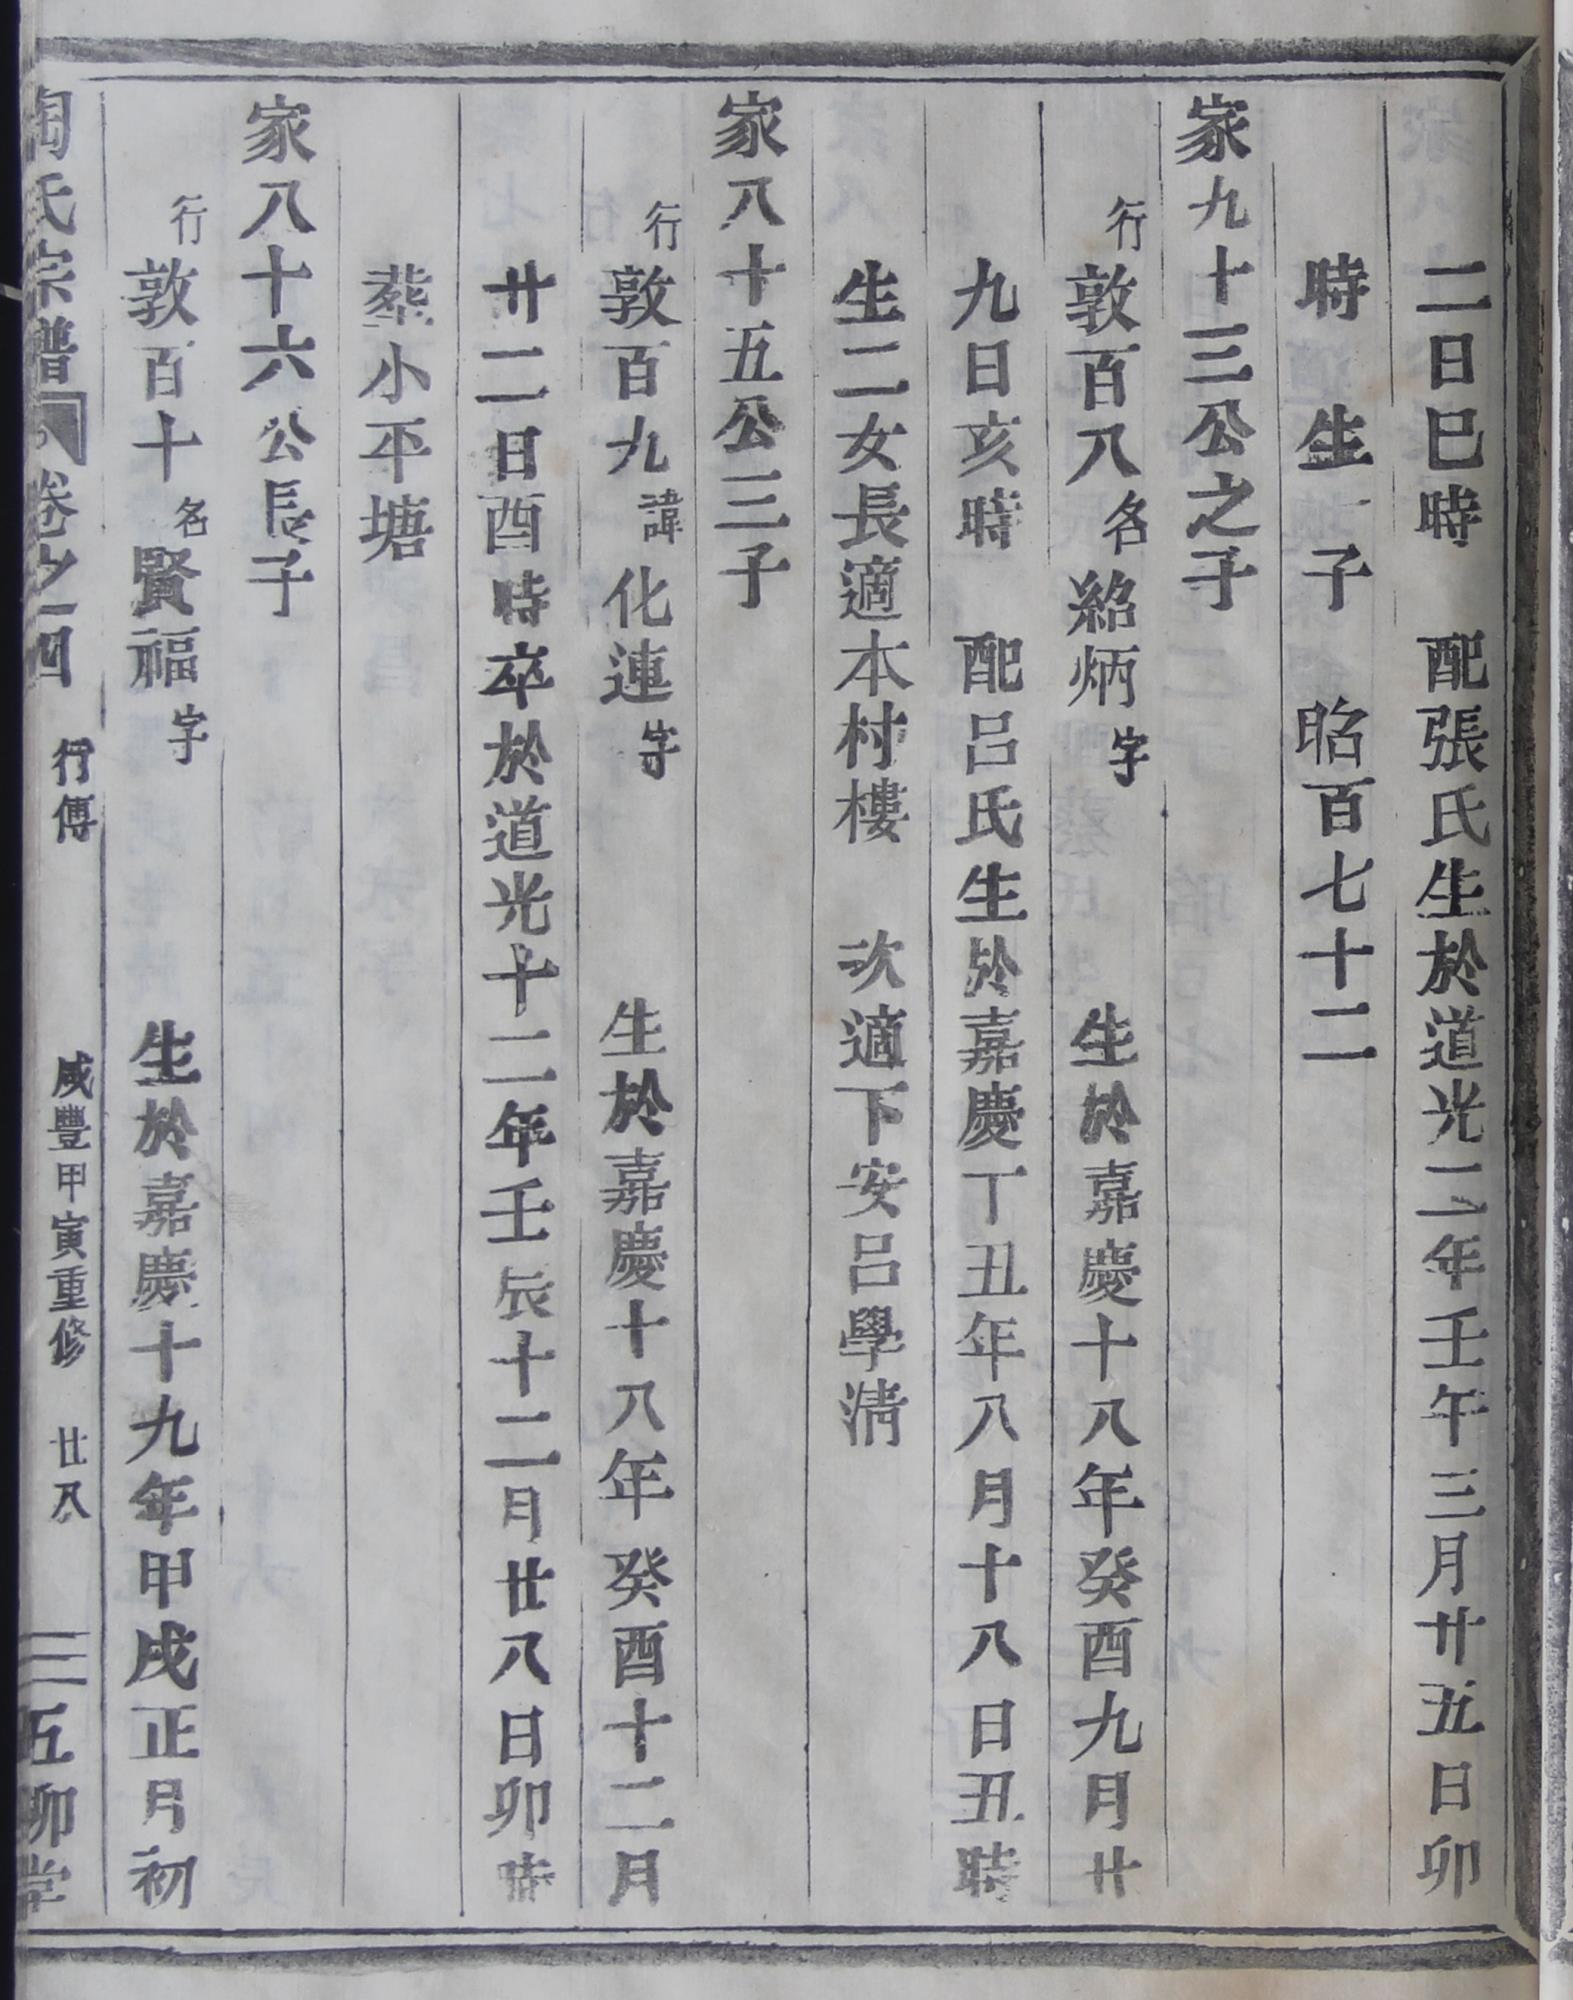 二日巳時　配張氏生於道光二年壬午三月廿五日卯
時　生一子　昭百七十二
家九十三公之子
行敦百八名紹炳字　生於嘉慶十八年癸酉九月廿
九日亥時　配呂氏生於嘉慶丁丑年八月十八日丑時
生二女長適本村樓　次適下安呂學清
家八十五公三子
行敦百九諱化連字　生於嘉慶十八年癸酉十二月
廿二日酉時卒於道光十二年壬辰十二月廿八日卯時
塟小平塘
家八十六公長子
行敦百十名賢福字　生於嘉慶十九年甲戌正月初
陶氏宗譜　卷之四　行傳　咸豐甲寅重修　廿八　五柳堂